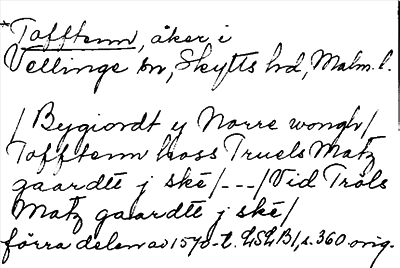 *Tofftenn, åker i
Vellinge sn, Skytts hd, Malm. l.
/Bygiordt y Norre wongh/
Tofftenn hoss Truels Matz
gaardtt j ské/---/Vid Tröls
Matz gaardtt j ské/
förra delen av 1570-t. LSLB1, s. 360 orig.